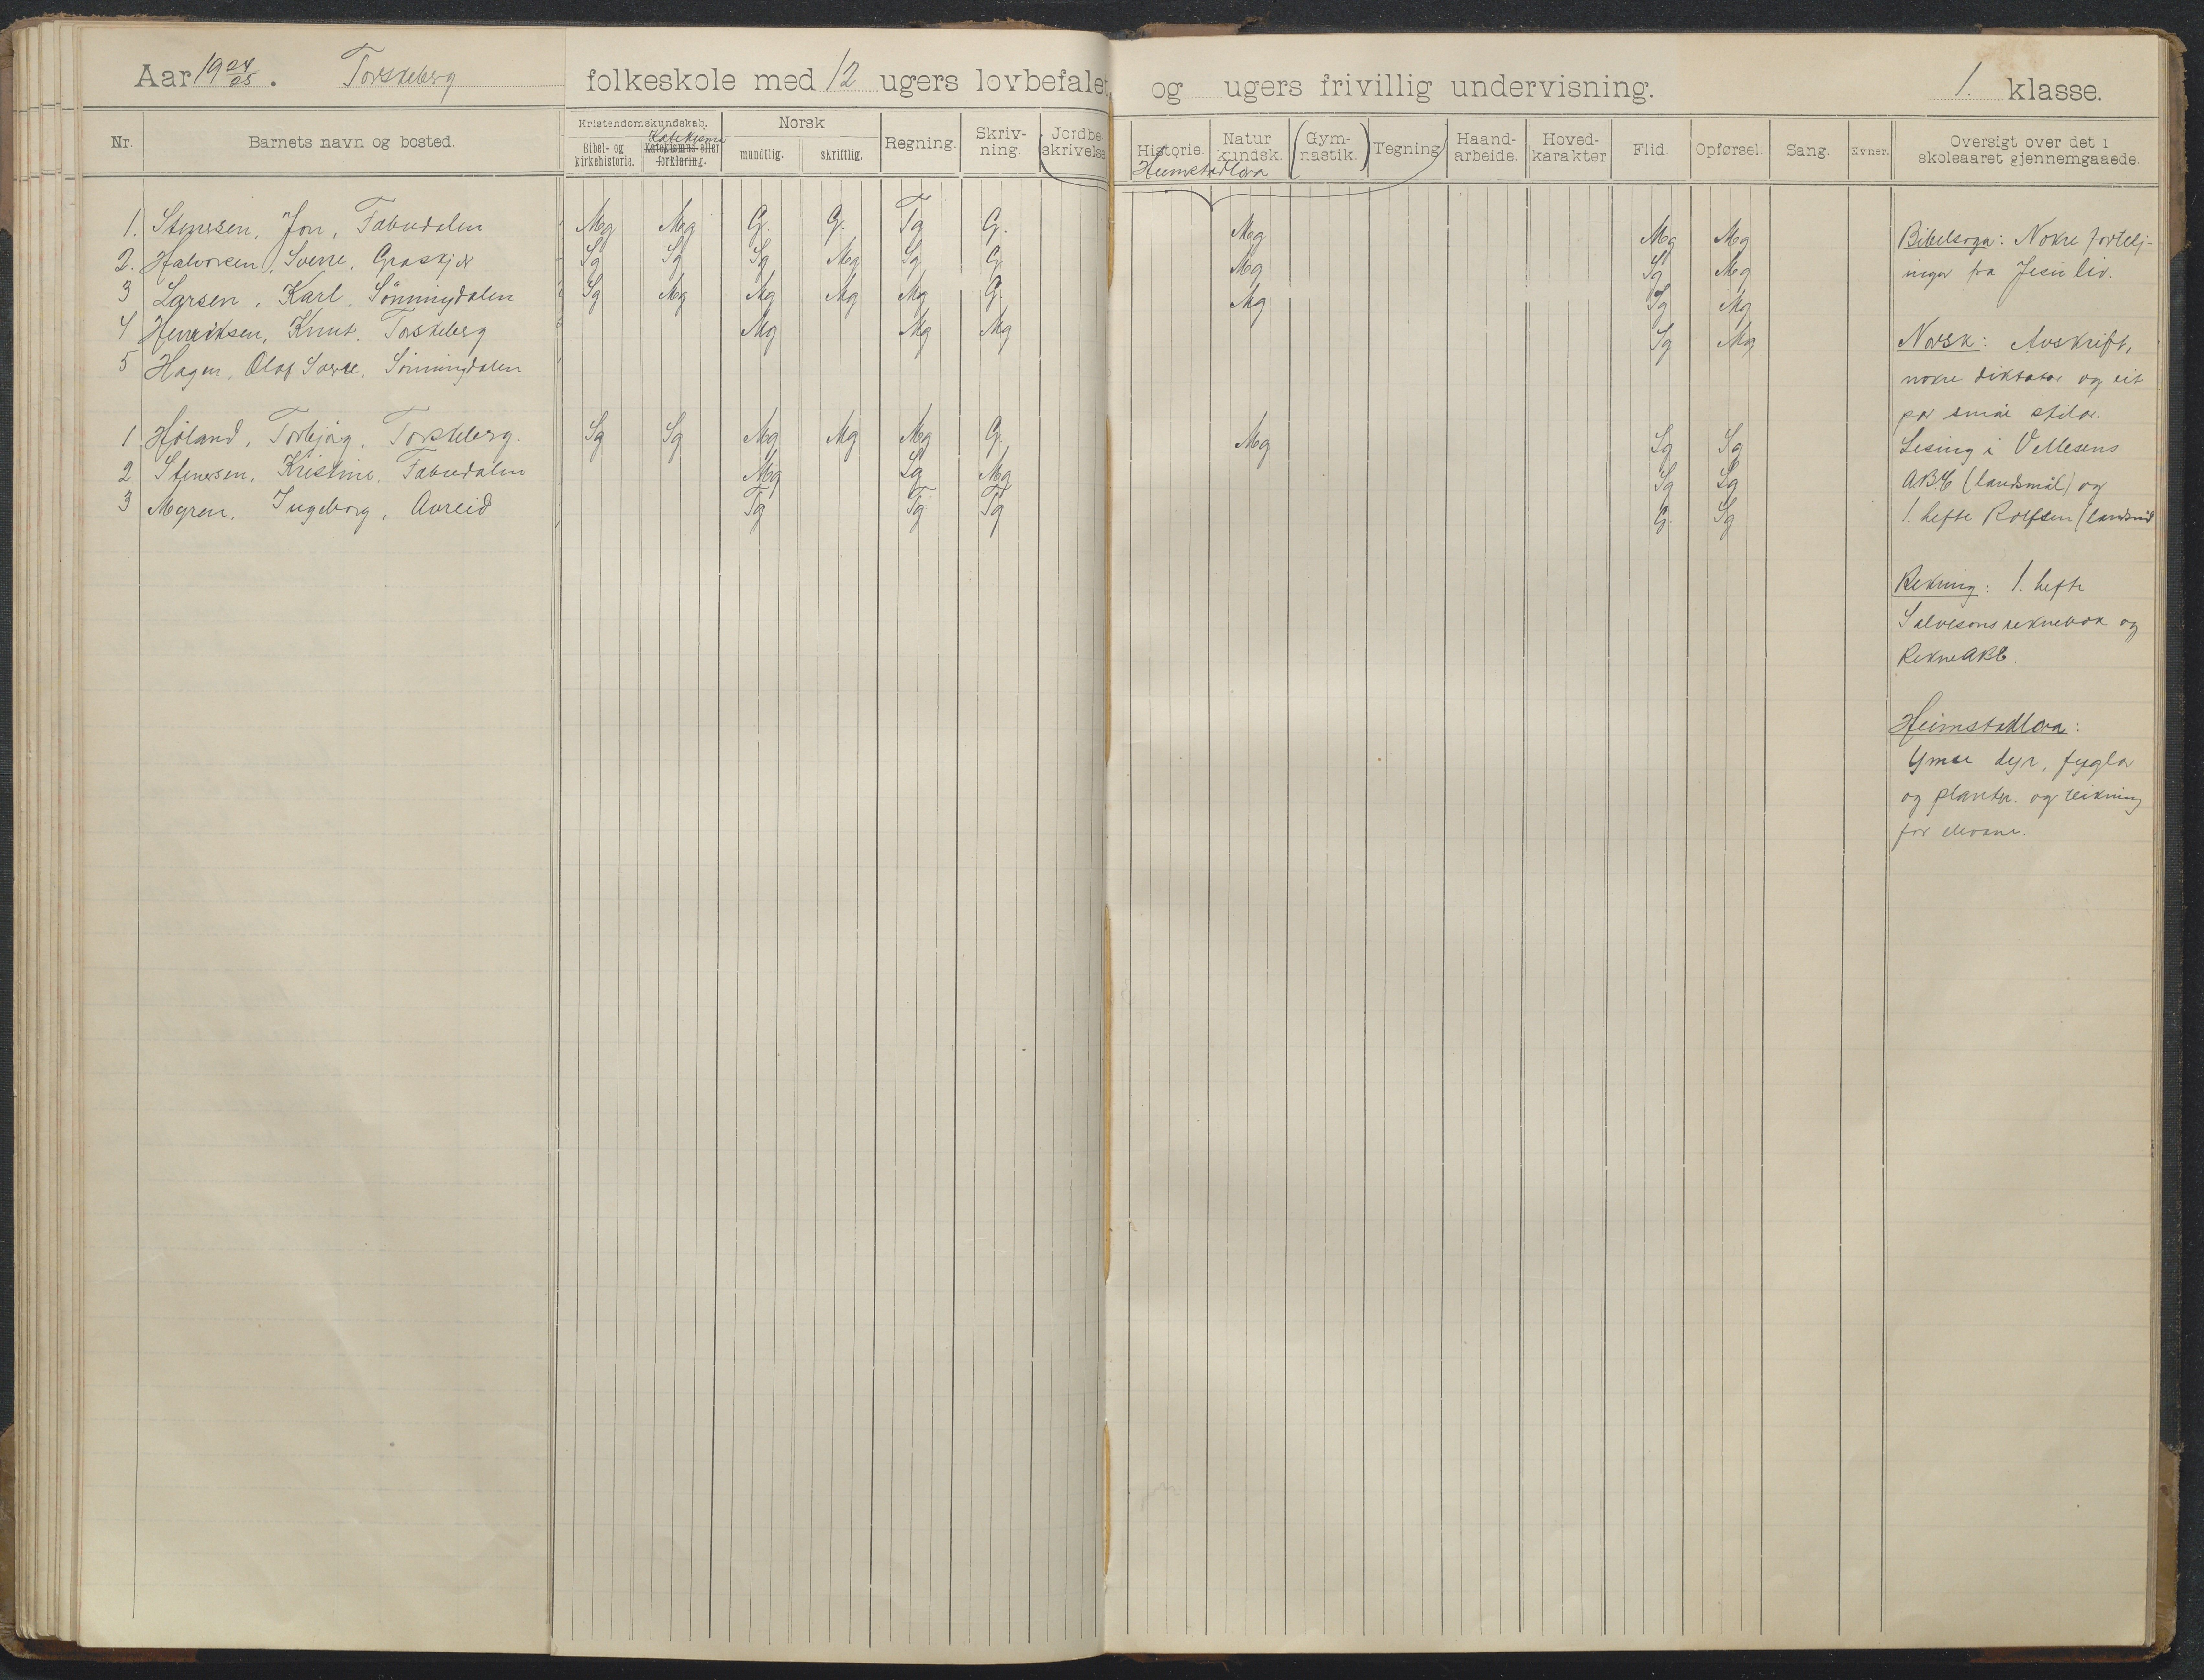 Aar 1924/25. Torskeberg folkeskole med 12 ugers lovbefalet og ugers frivillig undervisning. 1. klasse.
Nr. Barnets navn og bosted. Kristendomskundskab. Bibel- og kirkehistorie. Katekismus eller forklaring. Katekisme Norsk mundtlig. skriftlig. Regning. Skriv-ning. Jordbe-skrivelse Historie. Natur kundsk. Gym-nastik. Tegning Haand-arbeide. Hoved-karakter Flid. Opførsel. Sang. Evner. Oversigt over det i skoleaaret gjennemgaaede.
Heimstadlæra
1. Stenersen, Jon, Fabudalen Mg Mg G. G. Tg G. Mg Mg Mg
2. Halvorsen, Sverre, Sg Sg Sg Mg Sg G Mg Sg Mg
3 Larsen, Karl, Sönningdalen Sg Mg Mg Mg Mg G. Mg Sg Mg
4 Henriksen, Knut, Torskeberg Mg Mg Mg Sg Mg
5 Hagen, Olaf Sverre, Sönningdalen
1 Høland, Torbjørg, Torskeberg. Sg Sg Mg Mg Mg G. Mg Sg Sg
2 Stenersen, Kristine, Fabudalen Mg Sg Mg Sg Sg
3 Myren, Ingeborg, Avreid Tg Tg Tg G. Sg
Bibelsoga: Nokre fortelj-
ingar fra Jesu liv.
Norsk: Avskrift,
nokre diktatar og eit
par små stilar.
Lesing i Vellesens
ABC (landsmål) og
1. hefte Rolfsen (landsmål
Rekning: 1. hefte
Salvesons reknebok og
RekneABC.
Heimstadlæra:
Ymse dyr, fuglar
og plantar. og teikning
for elevane.